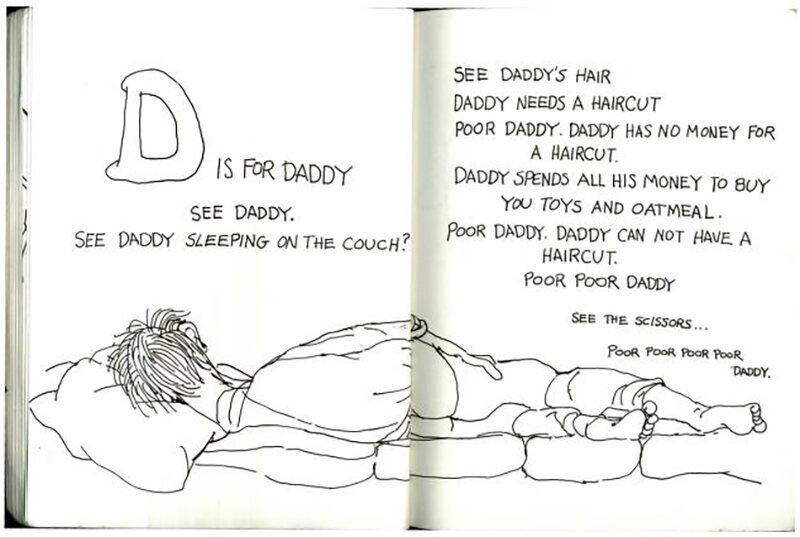 D IS FOR DADDY
SEE DADDY.
SEE DADDY SLEEPING ON THE COUCH?
SEE DADDY'S HAIR
DADDY NEEDS A HAIRCUT
POOR DADDY. DADDY HAS NO MONEY FOR
A HAIRCUT.
DADDY SPENDS ALL HIS MONEY TO BUY
YOU TOYS AND OATMEAL.
POOR DADDY. DADDY CAN NOT HAVE A
HAIRCUT.
POOR POOR DADDY
SEE THE SCISSORS...
POOR POOR POOR POOR
DADDY.